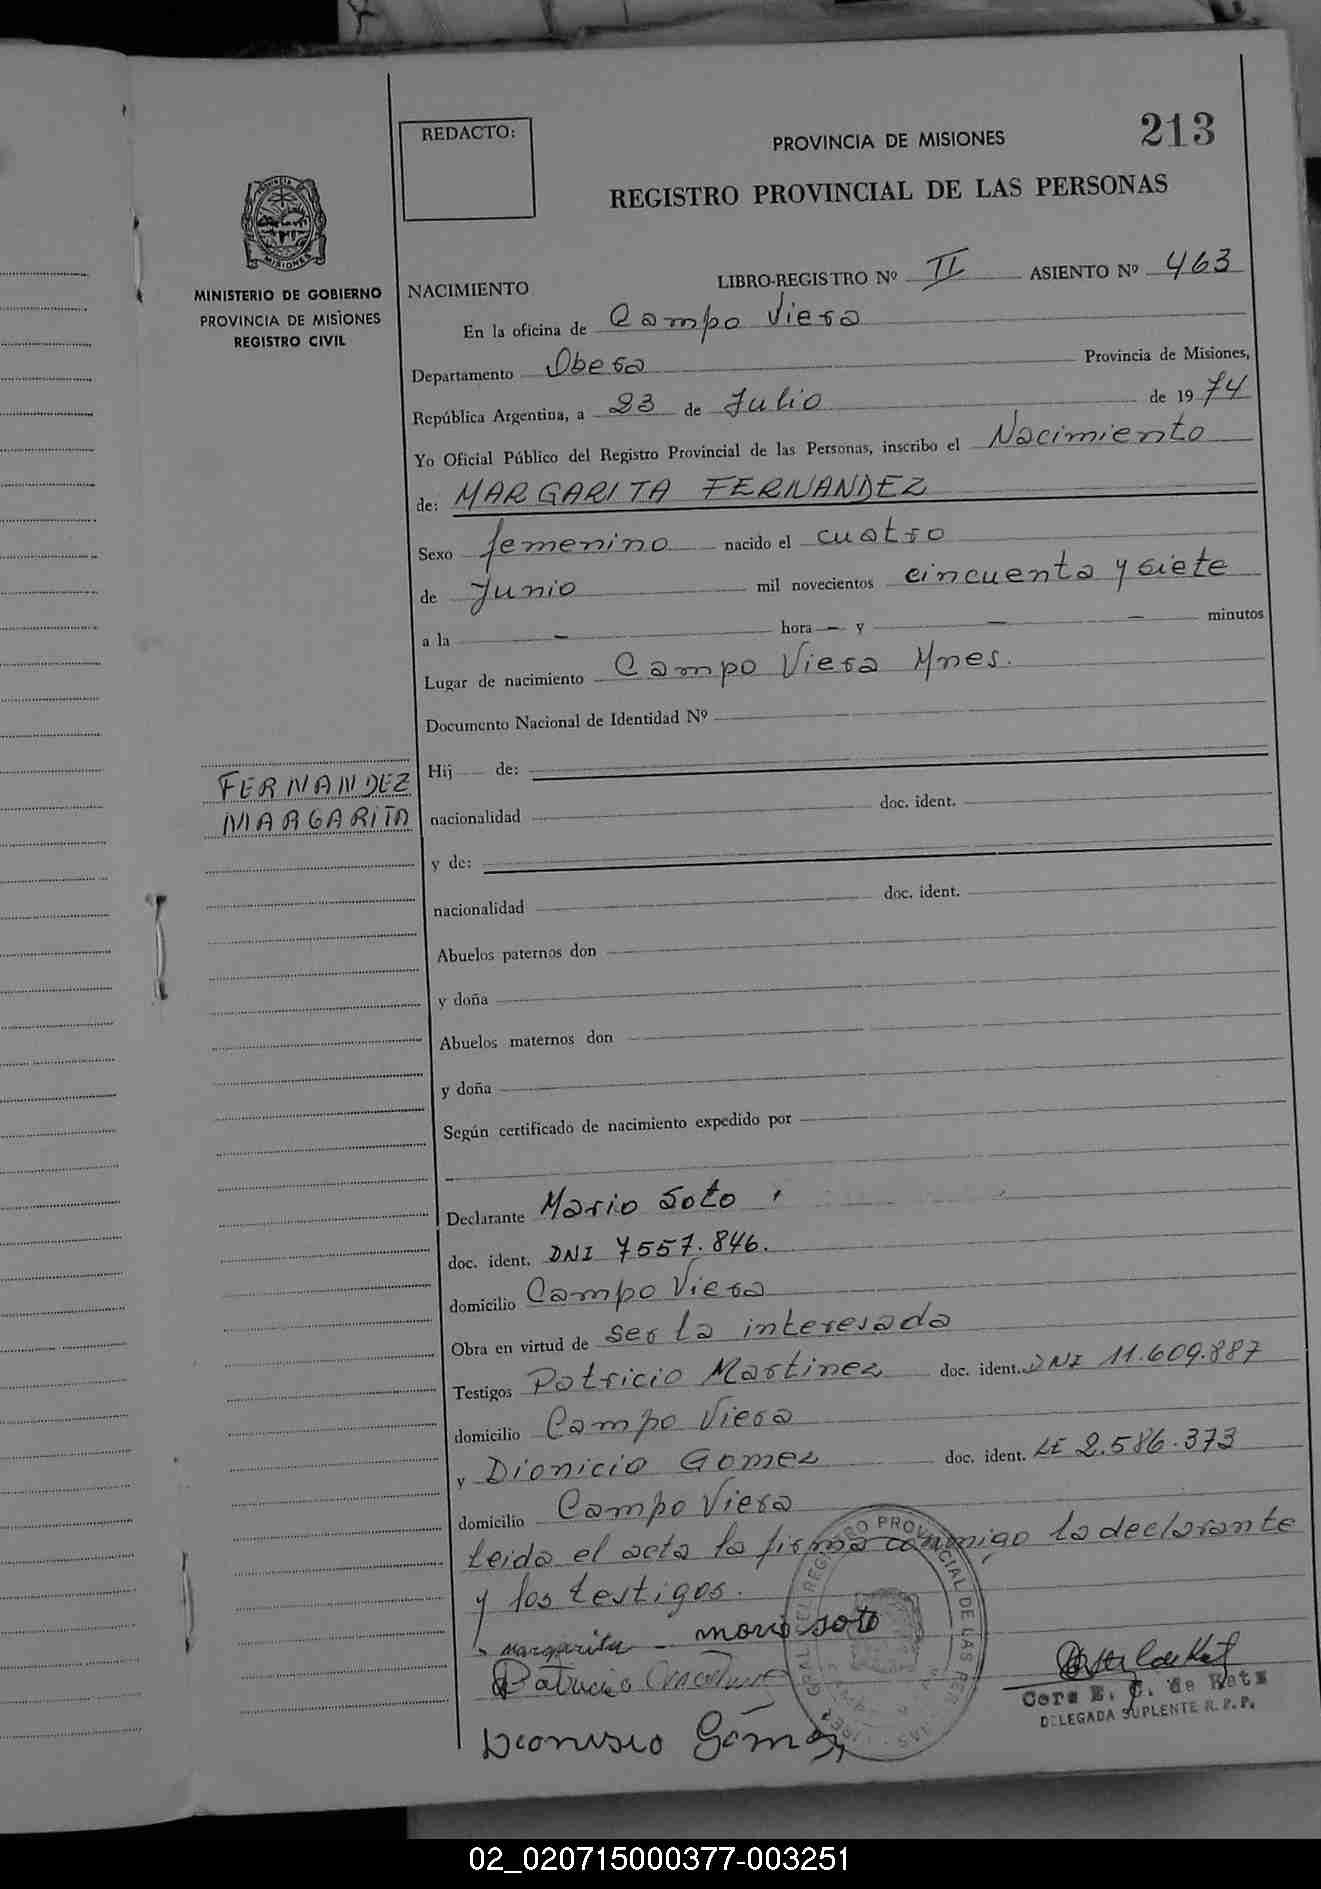 213
REDACTO:
PROVINCIA DE MISIONES
REGISTRO PROVINCIAL DE LAS PERSONAS
PROVINCIA DE
MISIONES
MINISTERIO DE GOBIERNO
PROVINCIA DE MISIONES
REGISTRO CIVIL
LIBRO-REGISTRO Nº II ASIENTO Nº 463
NACIMIENTO
En la oficina de Campo Viera
Departamento Obera Provincia de Misiones,
República Argentina, a 23 de Julio de 1974
Yo Oficial Público del Registro Provincial de las Personas, inscribo el Nacimiento
de: MARGARITA FERNANDEZ
Sexo femenino nacido el cuatro
de Junio mil novecientos cincuenta y siete
a la — hora — y — — minutos
Lugar de nacimiento Campo Viera Mnes.
Documento Nacional de Identidad Nº
FERNANDEZ
MARGARITA
Hij de:
nacionalidad doc. ident.
y de:
nacionalidad doc. ident.
Abuelos paternos don
y doña
Abuelos maternos don
y doña
Según certificado de nacimiento expedido por
Declarante Mario Soto
doc. ident. DNI 7557.846.
domicilio Campo Viera
Obra en virtud de ser la interesada
Testigos Patricio Martinez doc. ident. DNI 11.609.887
domicilio Campo Viera
y Dionicio Gomez doc. ident. LE 2.586.373
domicilio Campo Viera
Leida el acta la firma conmigo la declarante
y los testigos.
margarita mario soto
Patricio
Dionisio Gómez
REGISTRO PROVINCIAL DE LAS PER
DELEGADA SUPLENTE R. P. P.
02_020715000377-003251